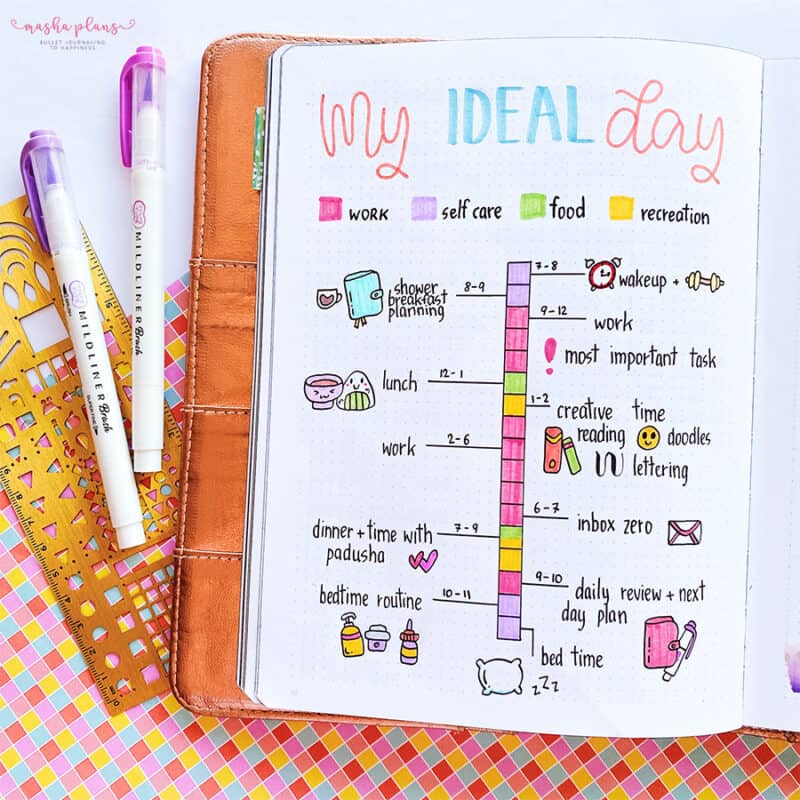 masha plans
BULLET JOURNALING
TO HAPPINESS
MILDLINER Brush
MILDLINER Brush
My IDEAL day
WORK self care food recreation
7-8
wakeup +
shower
breakfast
planning
8-9
9-12
work
most important task
lunch
12-1
1-2
creative time
reading doodles
lettering
work
2-6
6-7
inbox zero
dinner + time with
padusha
7-9
9-10
daily review + next
day plan
bedtime routine
10-11
bed time
zzz